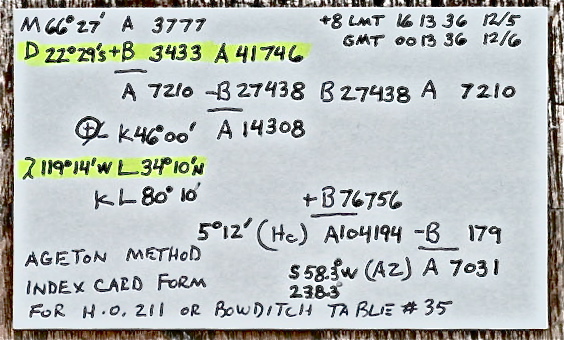 M 66°27' A 3777 +8 LMT 16 13 36 12/5
GMT 00 13 36 12/6
D 22°29's +B 3433 A 41746
A 7210 -B 27438 B 27438 A 7210
K 46°00' A 14308
λ 119°14'W L 34°10'N
K L 80° 10' +B 76756
5°12' (Hc) A 104194 -B 179
AGETON METHOD S 58.3°W (AZ) A 7031
INDEX CARD FORM 238.3
FOR H.O. 211 OR BOWDITCH TABLE #35